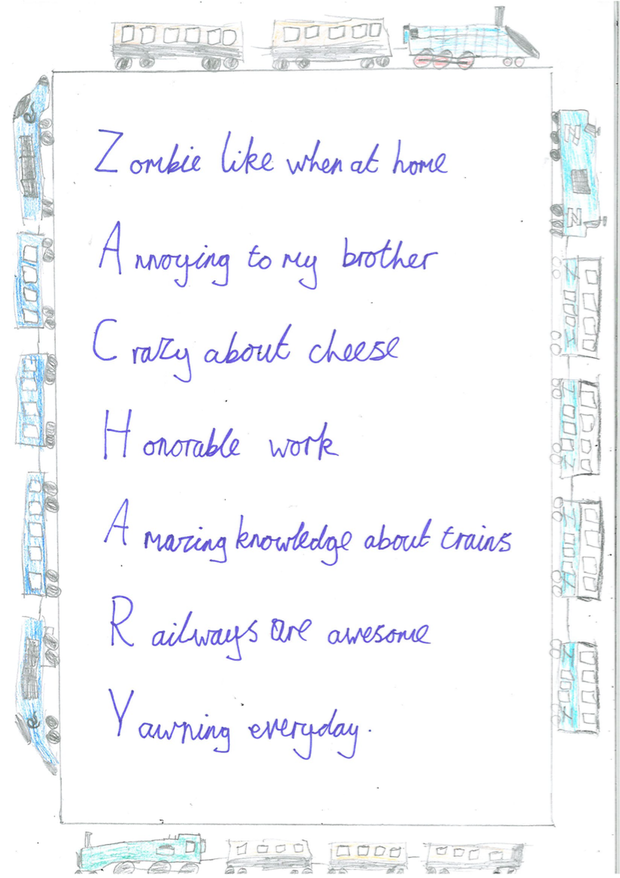 Zombie like when at home
Annoying to my brother
Crazy about cheese
Honorable work
Amazing knowledge about trains
Railways are awesome
Yawning everyday.